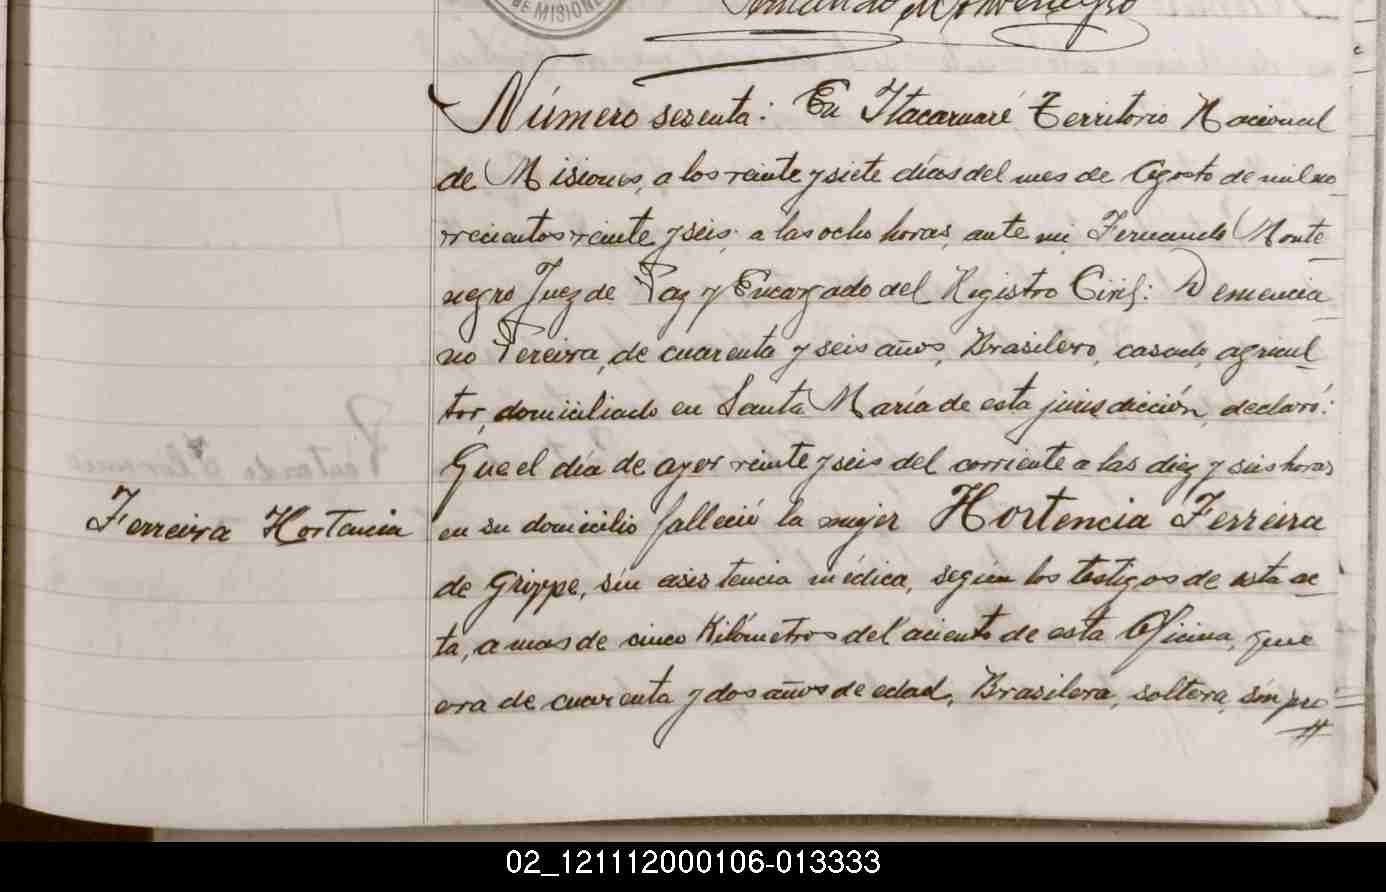 DE MISIONE
Fernando Montenegro
Número sesenta: En Itacaruaré Territorio Nacional
de Misiones, a los veinte y siete días del mes de Agosto de mil no
vecientos veinte y seis, a las ocho horas, ante mi, Fernando Monte
negro Juez de Paz y Encargado del Registro Civil: Demencia
no Pereira, de cuarenta y seis años, Brasilero, casado, agricul
tor, domiciliado en Santa María de esta jurisdicción, declaró:
Que el día de ayer veinte y seis del corriente a las diez y seis horas
Ferreira Hortancia
en su domicilio falleció la mujer Hortencia Ferreira
de Grippe, sin asistencia médica, según los testigos de esta ac
ta, a mas de cinco Kilómetros del aciento de esta Oficina, que
era de cuarenta y dos años de edad, Brasilera, soltera, sin pro
02_121112000106-013333